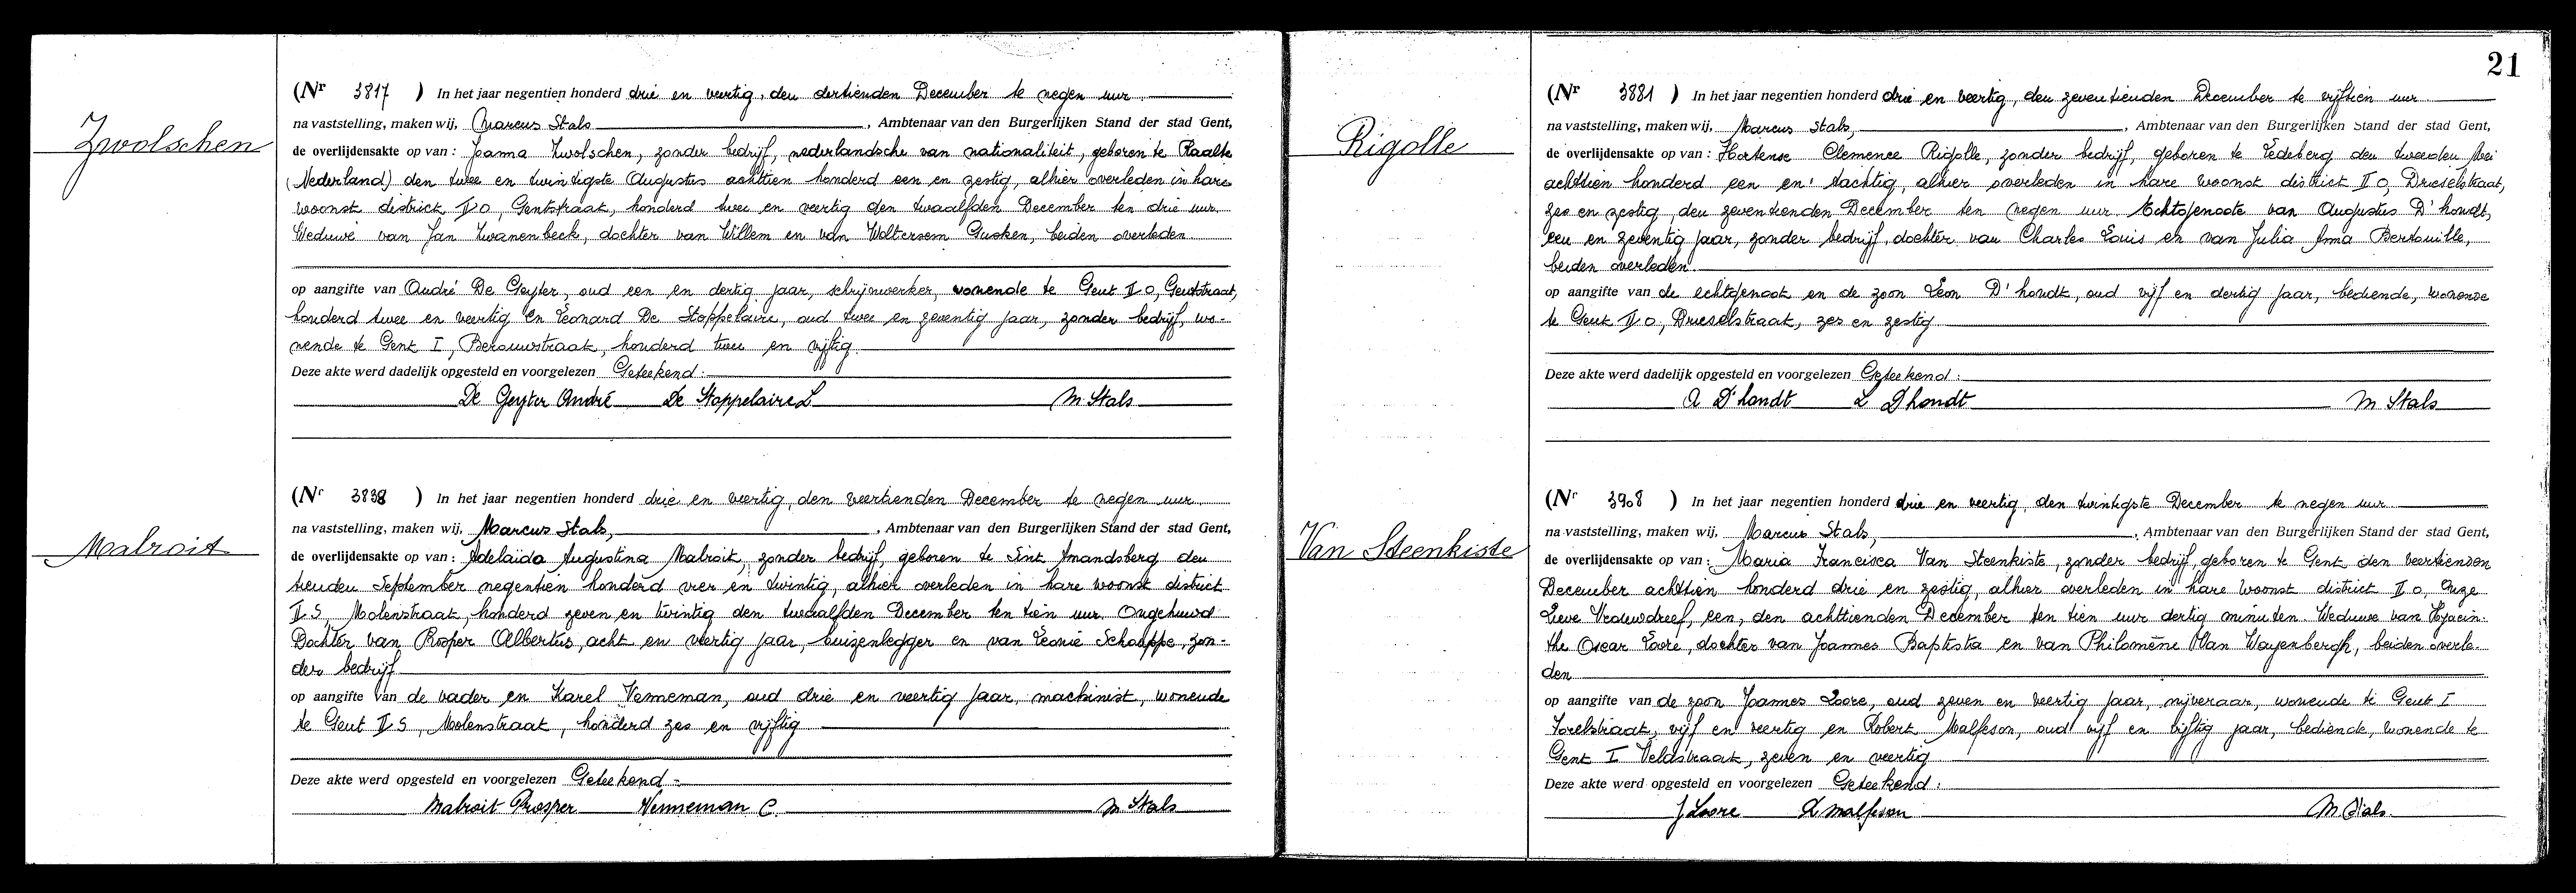 Zwolschen
(Nr 3817 ) In het jaar negentien honderd drie en veertig, den dertienden December te negen uur
na vaststelling, maken wij, Marcus Stals, Ambtenaar van den Burgerlijken Stand der stad Gent,
de overlijdensakte op van : Joanna Zwolschen, zonder bedrijf, nederlandsche van nationaliteit, geboren te Raalte
(Nederland) den twee en twintigste Augustus achttien honderd een en zestig, alhier overleden in hare
woonst district II O, Gentstraat, honderd twee en veertig den twaalfden December ten drie uur.
Weduwe van Jan Zwanenbeck, dochter van Willem en van Woltersem Gusken, beiden overleden.
op aangifte van André De Geyter, oud een en dertig jaar, schrijnwerker, wonende te Gent II O, Gentstraat,
honderd twee en veertig en Leonard De Stoppelaire, oud twee en zeventig jaar, zonder bedrijf, wo-
nende te Gent I, Berouwstraat, honderd twee en vijftig
Deze akte werd dadelijk opgesteld en voorgelezen Geteekend:
De Geyter André De Stoppelaire L M. Stals
Malroit
(Nr 3838 ) In het jaar negentien honderd drie en veertig, den veertienden December te negen uur
na vaststelling, maken wij, Marcus Stals, Ambtenaar van den Burgerlijken Stand der stad Gent,
de overlijdensakte op van : Adelaïda Augustina Malroit, zonder bedrijf, geboren te Sint Amandsberg den
tienden September negentien honderd vier en twintig, alhier overleden in hare woonst district
II S, Molenstraat, honderd zeven en twintig den twaalfden December ten tien uur. Ongehuwd
Dochter van Prosper Albertus, acht en veertig jaar, buizenlegger en van Leonie Schaeppe, zon-
der bedrijf
op aangifte van de vader en Karel Venneman, oud drie en veertig jaar, machinist, wonende
te Gent II S, Molenstraat, honderd zes en vijftig
Deze akte werd opgesteld en voorgelezen Geteekend:
Malroit Prosper Venneman C. M. Stals
21
Rigolle
(Nr 3881 ) In het jaar negentien honderd drie en veertig, den zeventienden December te vijftien uur
na vaststelling, maken wij, Marcus Stals, Ambtenaar van den Burgerlijken Stand der stad Gent,
de overlijdensakte op van : Hortense Clemence Rigolle, zonder bedrijf, geboren te Ledeberg den tweeden Mei
achttien honderd een en tachtig, alhier overleden in hare woonst district II O, Drieselstraat,
zes en zestig, den zeventienden December ten negen uur. Echtgenoote van Augustus D'hondt,
een en zeventig jaar, zonder bedrijf, dochter van Charles Louis en van Julia Anna Bertouille,
beiden overleden.
op aangifte van de echtgenoot en de zoon Leon D'hondt, oud vijf en dertig jaar, bediende, wonende
te Gent II O, Drieselstraat, zes en zestig
Deze akte werd dadelijk opgesteld en voorgelezen Geteekend:
A D'hondt L Dhondt M Stals
Van Steenkiste
(Nr 3908 ) In het jaar negentien honderd drie en veertig, den twintigste December te negen uur
na vaststelling, maken wij, Marcus Stals, Ambtenaar van den Burgerlijken Stand der stad Gent,
de overlijdensakte op van : Maria Francisca Van Steenkiste, zonder bedrijf, geboren te Gent den veertienden
December achttien honderd drie en zestig, alhier overleden in hare woonst district II O, Onze
Lieve Vrouwdreef, een, den achttienden December ten tien uur dertig minuten. Weduwe van Hyacin-
the Oscar Loore, dochter van Joannes Baptista en van Philomène Van Wayenbergh, beiden overle-
den
op aangifte van de zoon Joannes Loore, oud zeven en veertig jaar, nijveraar, wonende te Gent I
vijf en veertig en Robert Malfeson, oud vijf en vijftig jaar, bediende, wonende te
Gent I Veldstraat, zeven en veertig
Deze akte werd opgesteld en voorgelezen Geteekend:
J Loore R Malfeson M. Stals